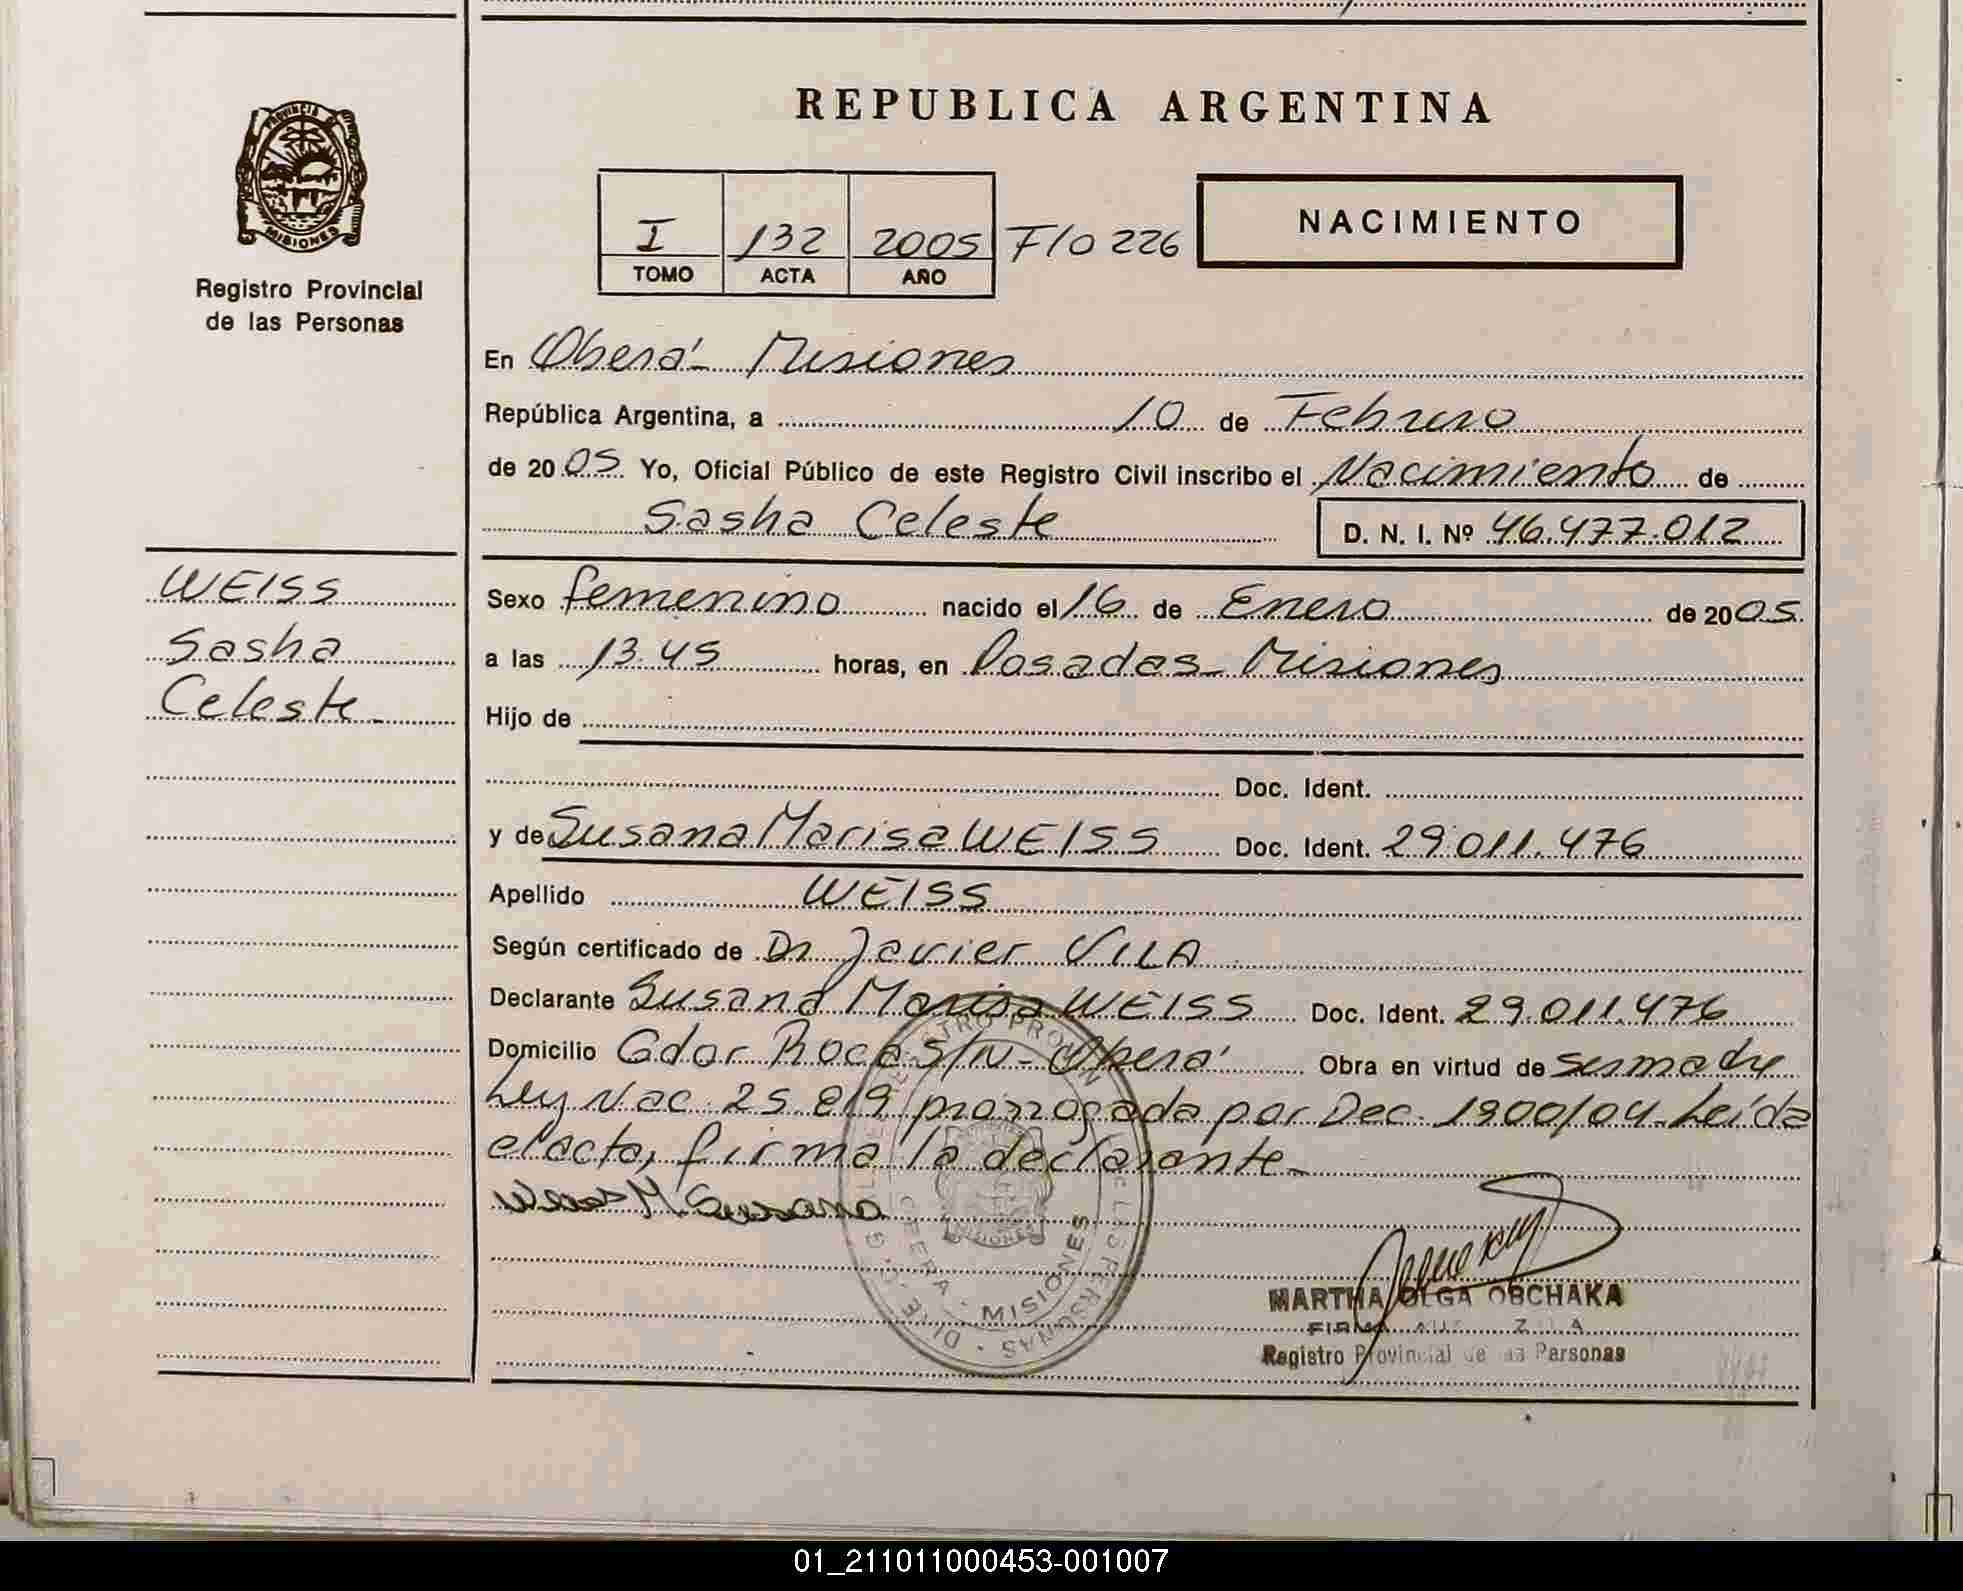 PROVINCIA DE
MISIONES
Registro Provincial
de las Personas
WEISS
Sasha
Celeste
REPUBLICA ARGENTINA
I 132 2005 Fº 226
TOMO ACTA AÑO
NACIMIENTO
En Oberá - Misiones
República Argentina, a 10 de Febrero
de 2005 Yo, Oficial Público de este Registro Civil inscribo el Nacimiento de
Sasha Celeste D. N. I. Nº 46.477.012
Sexo femenino nacido el 16 de Enero de 2005
a las 13.45 horas, en Posadas - Misiones
Hijo de
Doc. Ident.
y de Susana Marisa WEISS Doc. Ident. 29.011.476
Apellido WEISS
Según certificado de Dr Javier VILA
Declarante Susana Marisa WEISS Doc. Ident. 29.011.476
Domicilio Gdor Roca S/N - Oberá Obra en virtud de ser madre
Ley Nac. 25.819 prorrogada por Dec. 1900/04 - Leída
el acta, firma la declarante -
MARTHA OLGA OBCHAKA
Registro Provincial de las Personas
OBERA - MISIONES
01_211011000453-001007